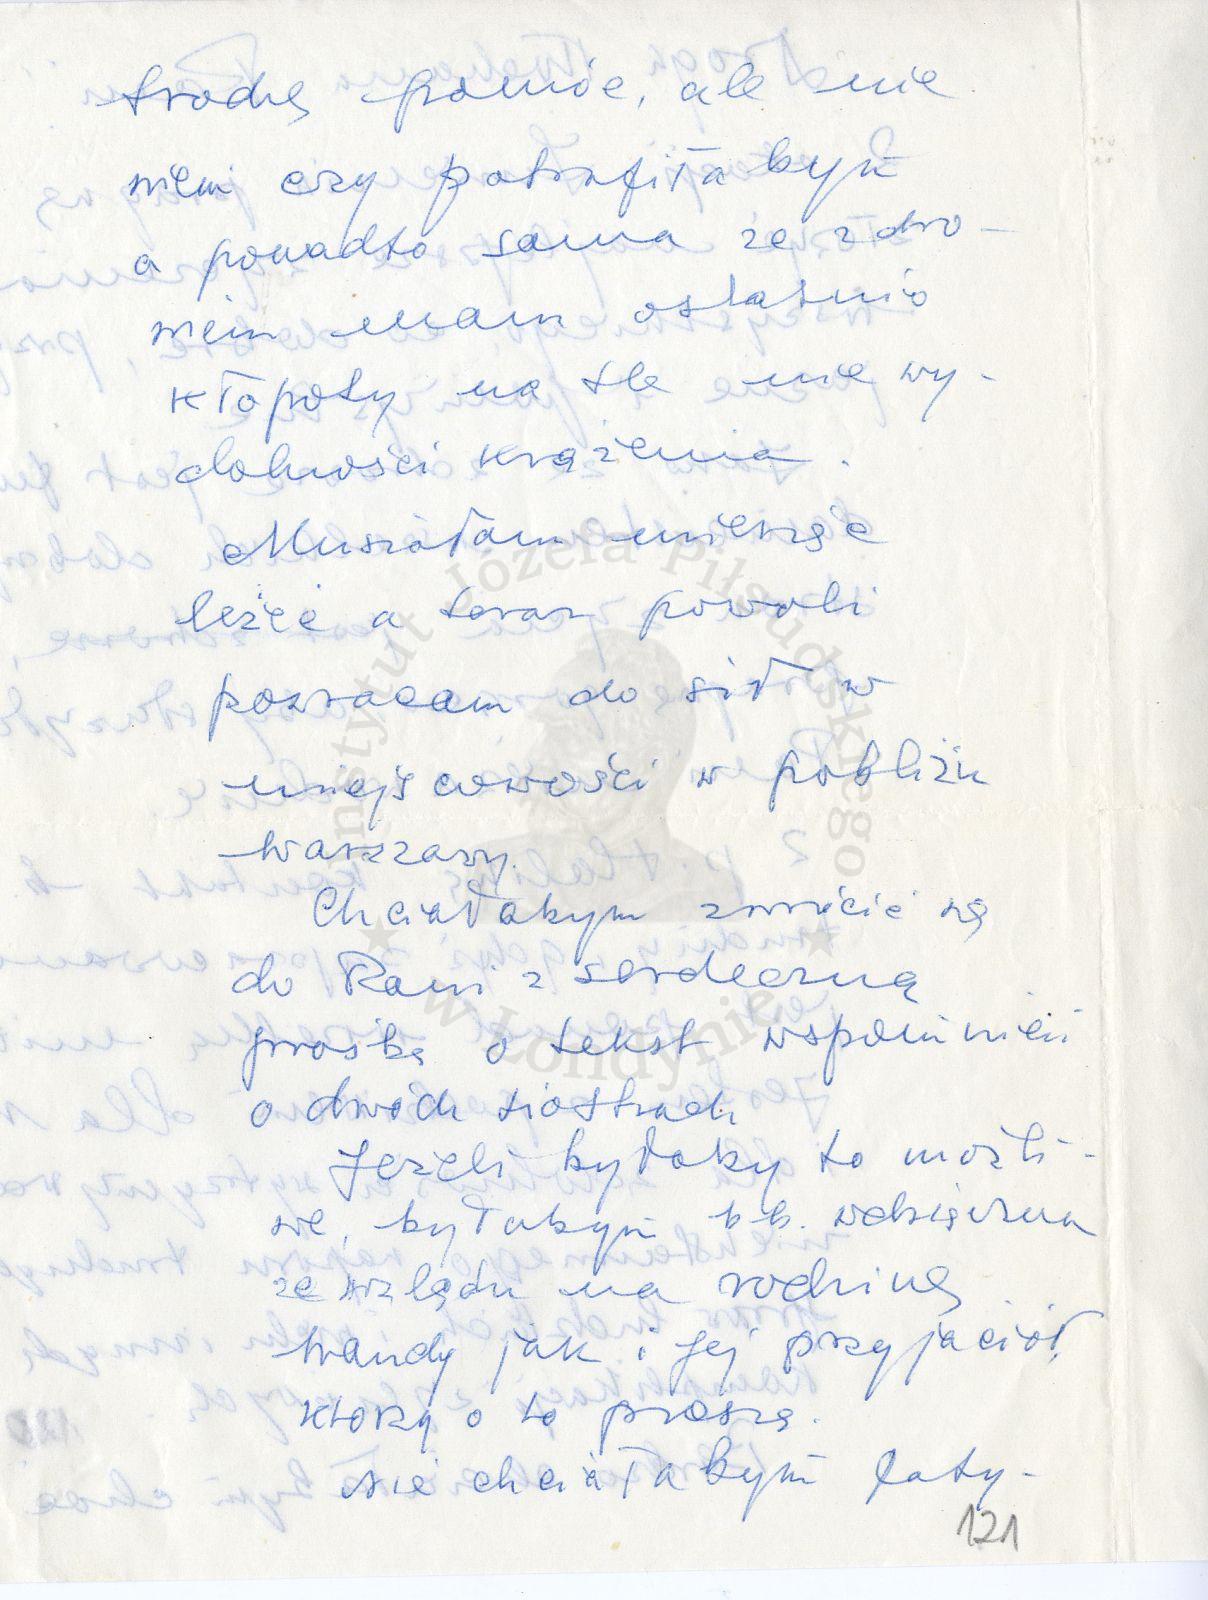 trochę pomóc, ale nie
wiem czy potrafiłabym
a ponadto sama ze zdro-
wiem mam ostatnio
kłopoty na tle nie wy-
dolności krążenia.
Musiałam miesiąc
leżeć a teraz powoli
powracam do sił w
miejscowości w pobliżu
Warszawy.
Chciałabym zwrócić się
do Pani z serdeczną
prośbą o tekst wspomnień
o dwóch siostrach
Jeżeli byłoby to możli-
we, byłabym b.b. wdzięczna
ze względu na rodzinę
Wandy jak i jej przyjaciół,
którzy o to proszą.
Nie chciałabym faty-
121
Instytut Józefa Piłsudskiego
w Londynie